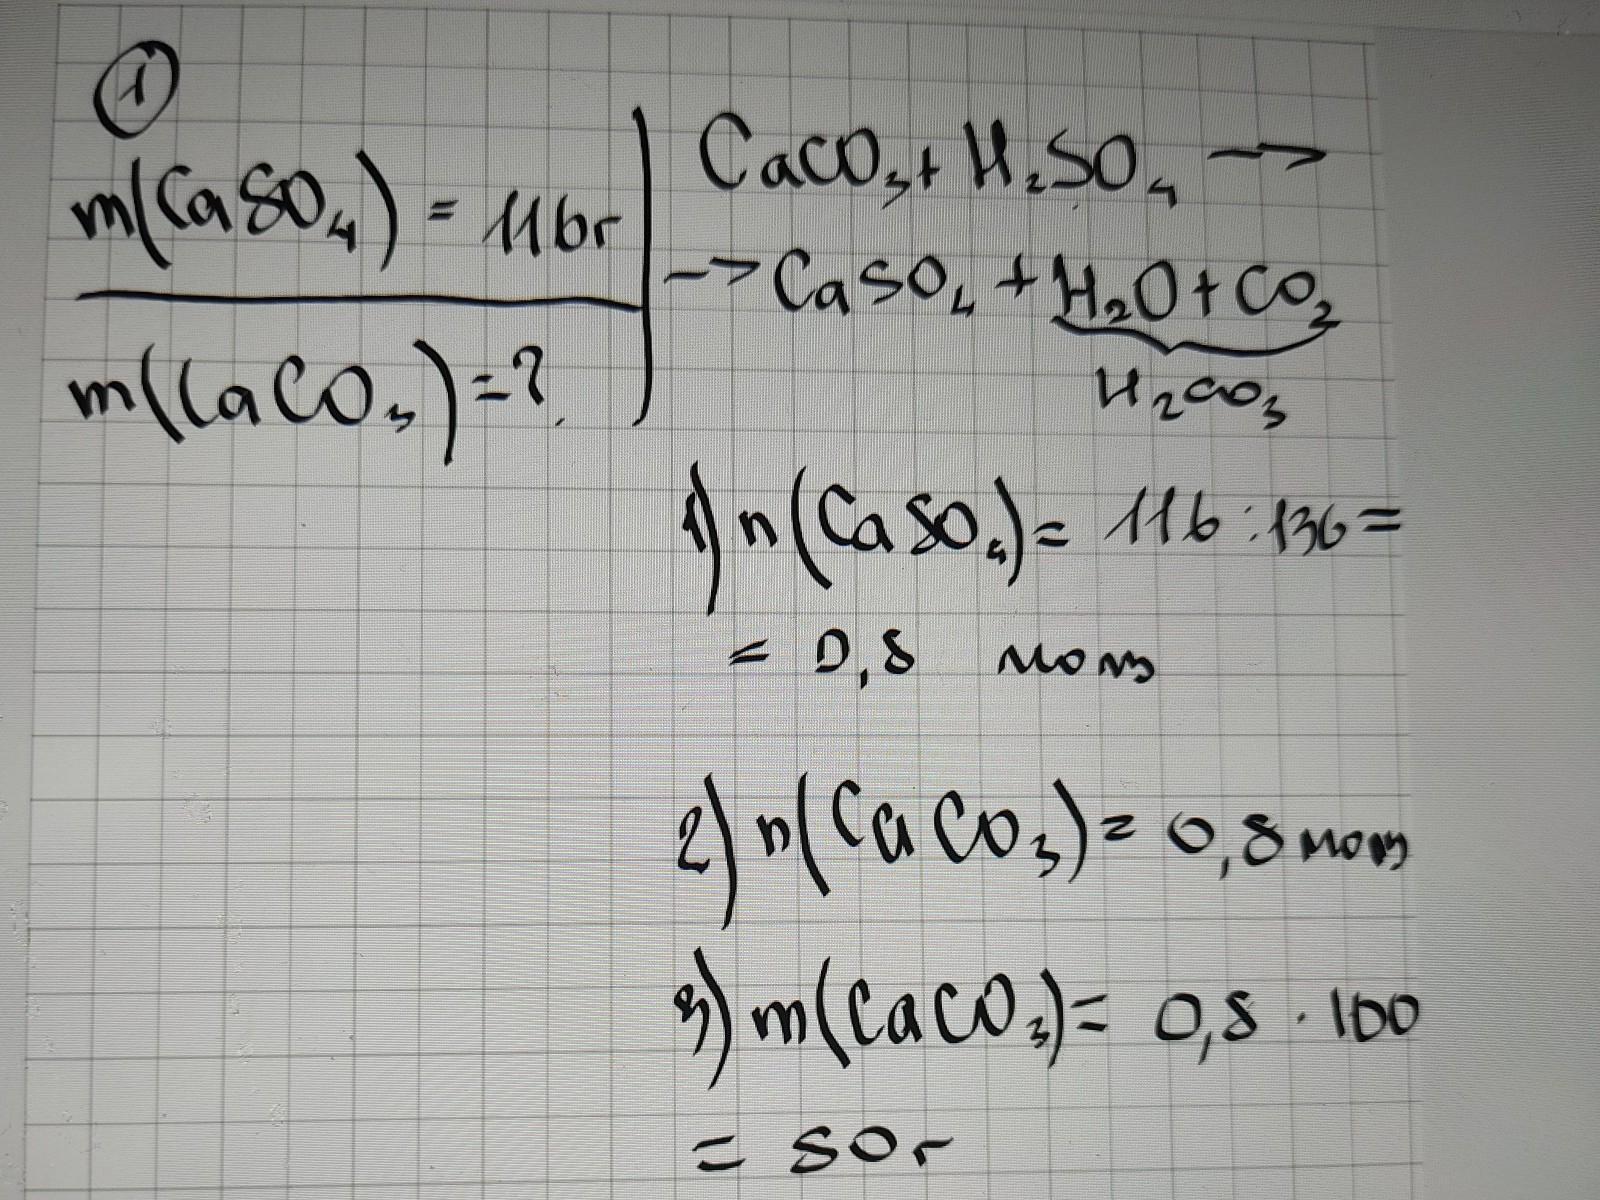 1
m(CaSO₄) = 116г
m(CaCO₃) = ?
CaCO₃ + H₂SO₄ →
→ CaSO₄ + H₂O + CO₂
H₂CO₃
1) n(CaSO₄) = 116 : 136 =
= 0,8 моль
2) n(CaCO₃) = 0,8 моль
3) m(CaCO₃) = 0,8 · 100
= 80г